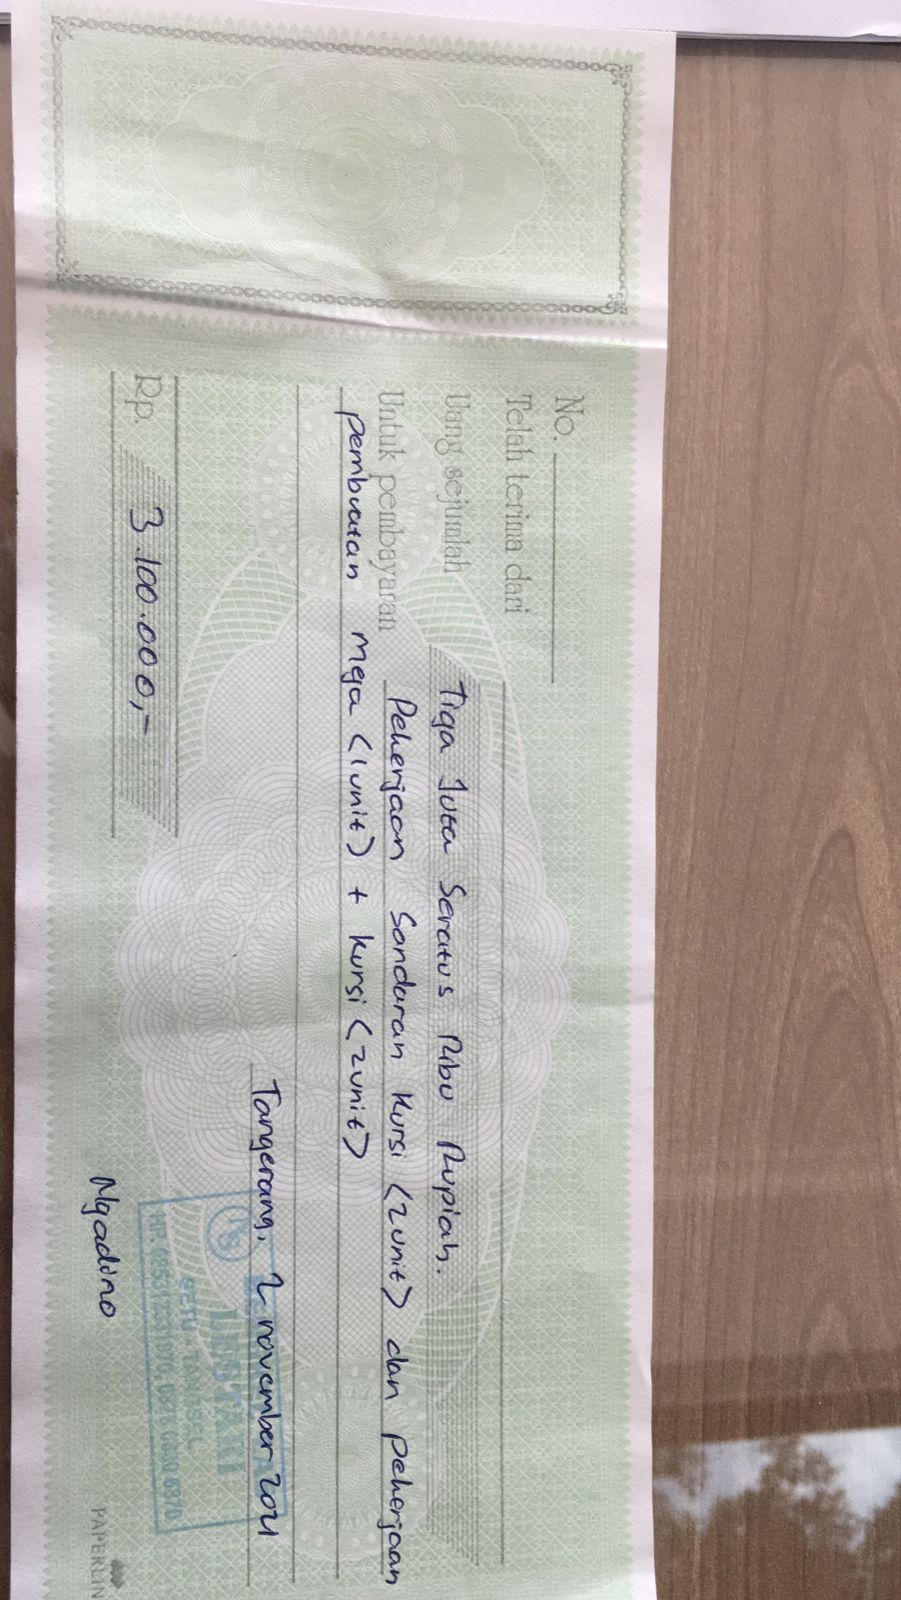 No.
Telah terima dari
Uang sejumlah Tiga Juta Seratus Ribu Rupiah.
Untuk pembayaran Pekerjaan Sandaran Kursi (2unit) dan Pekerjaan
pembuatan meja (1unit) + kursi (2unit)
Tangerang, 2 november 2021
Rp. 3.100.000,-
LESTARI
SETU - TANGSEL
Ngadino
PAPERLINE